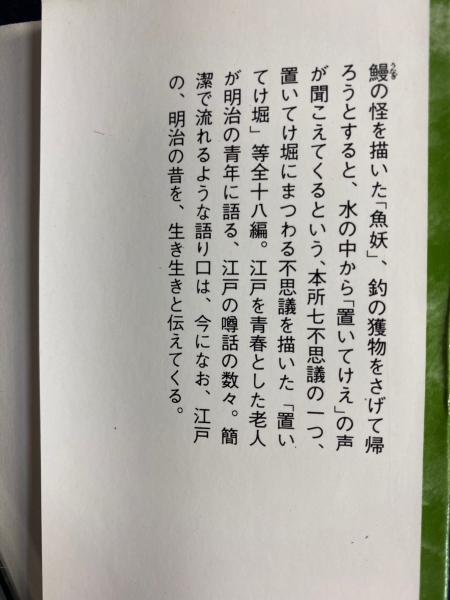 鰻の怪を描いた「魚妖」、釣の獲物をさげて帰
ろうとすると、水の中から「置いてけえ」の声
が聞こえてくるという、本所七不思議の一つ、
置いてけ堀にまつわる不思議を描いた「置い
てけ堀」等全十八編。江戸を青春とした老人
が明治の青年に語る、江戸の噂話の数々。簡
潔で流れるような語り口は、今になお、江戸
の、明治の昔を、生き生きと伝えてくる。